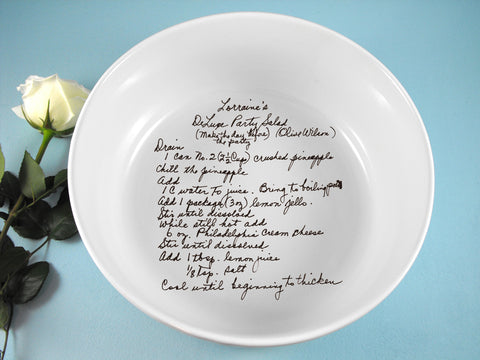 Lorraine's
DeLuxe Party Salad
(Make the day before) (Olive Wilson)
the party
Drain
1 can No. 2 (2½ Cups) crushed pineapple
Chill the pineapple
Add
1 C water to juice. Bring to boiling point
Add 1 package (3 oz) lemon jello.
Stir until dissolved
While still hot add
6 oz. Philadelphia Cream Cheese
Stir until dissolved
Add 1 tbsp. lemon juice
⅛ tsp. salt
Cool until beginning to thicken